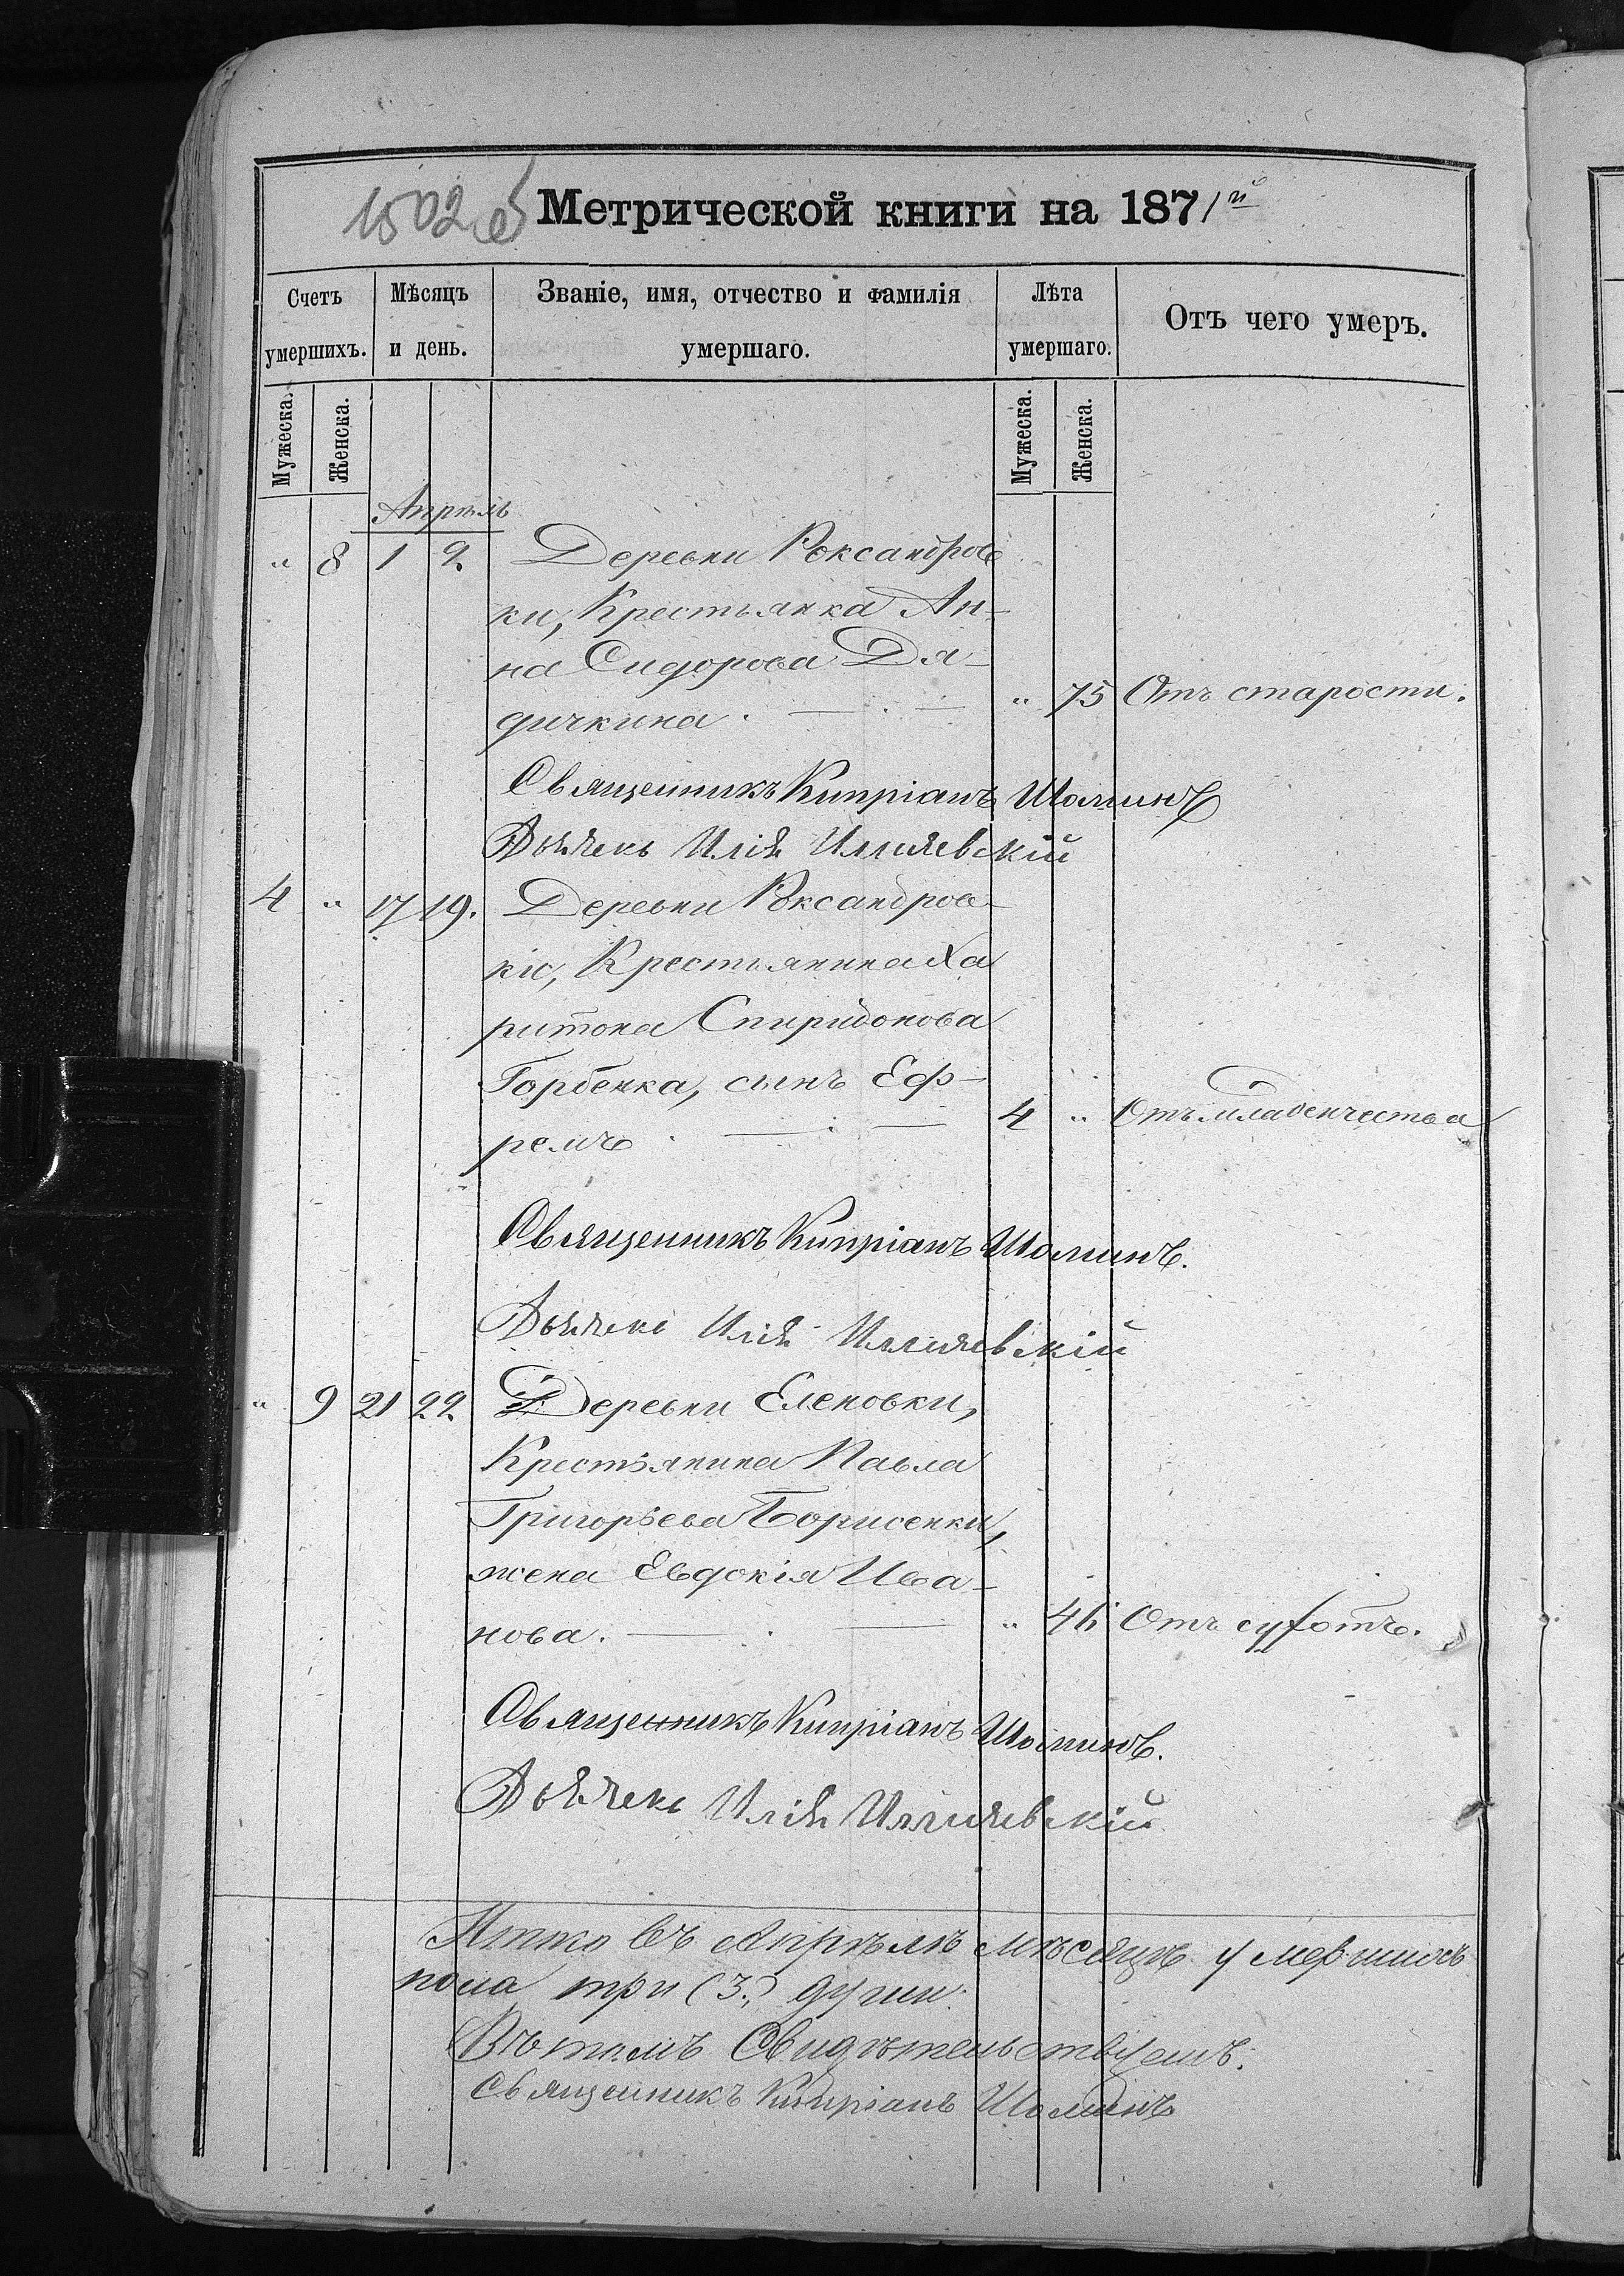 1502 об
Метрической книги на 1871й
Счетъ умершихъ. Мѣсяцъ и день. Званіе, имя, отчество и фамилія умершаго. Лѣта умершаго. Отъ чего умеръ.
Мужеска. Женска. Мужеска. Женска.
Апрѣль
" 8 1 2 Деревни Роксандров
ки, Крестьянка Ан-
на Сидорова Дя-
дичкина. " 75 Отъ старости.
Священникъ Кипріанъ Шоминъ
Дьячекъ Илія Иллияевскій
4 " 17 19. Деревни Роксандров-
ки, Крестьянина Ха
ритона Спиридонова
Горбенка, сынъ Еф-
ремъ. 4 " Отъ младенчества
Священникъ Кипріанъ Шоминъ.
Дьячекъ Илія Иллияевскій
" 9 21 22 Деревни Еленовки,
Крестьянина Павла
Григорьева Борисенки,
жена Евдокія Ива-
нова. " 46 Отъ сухотъ.
Священникъ Кипріанъ Шоминъ.
Дьячекъ Илія Иллияевскій
Итого въ Апрѣлѣ мѣсяцѣ умерших
пола три (3.) души.
Въ томъ Свидѣтельствуемъ:
Священникъ Кипріанъ Шоминъ